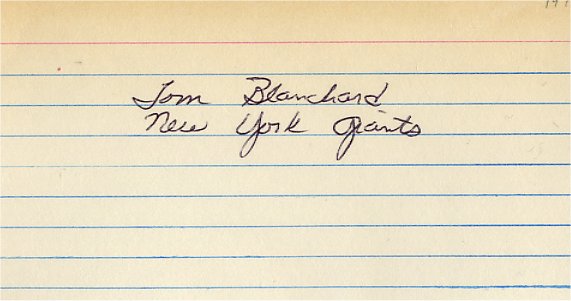 Tom Blanchard
New York Giants